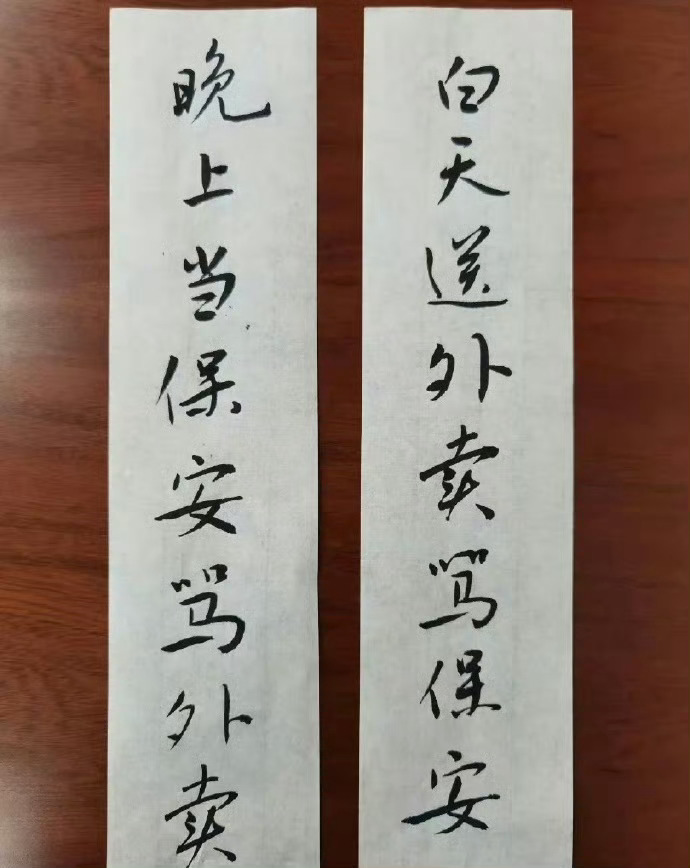 白天送外卖骂保安
晚上当保安骂外卖